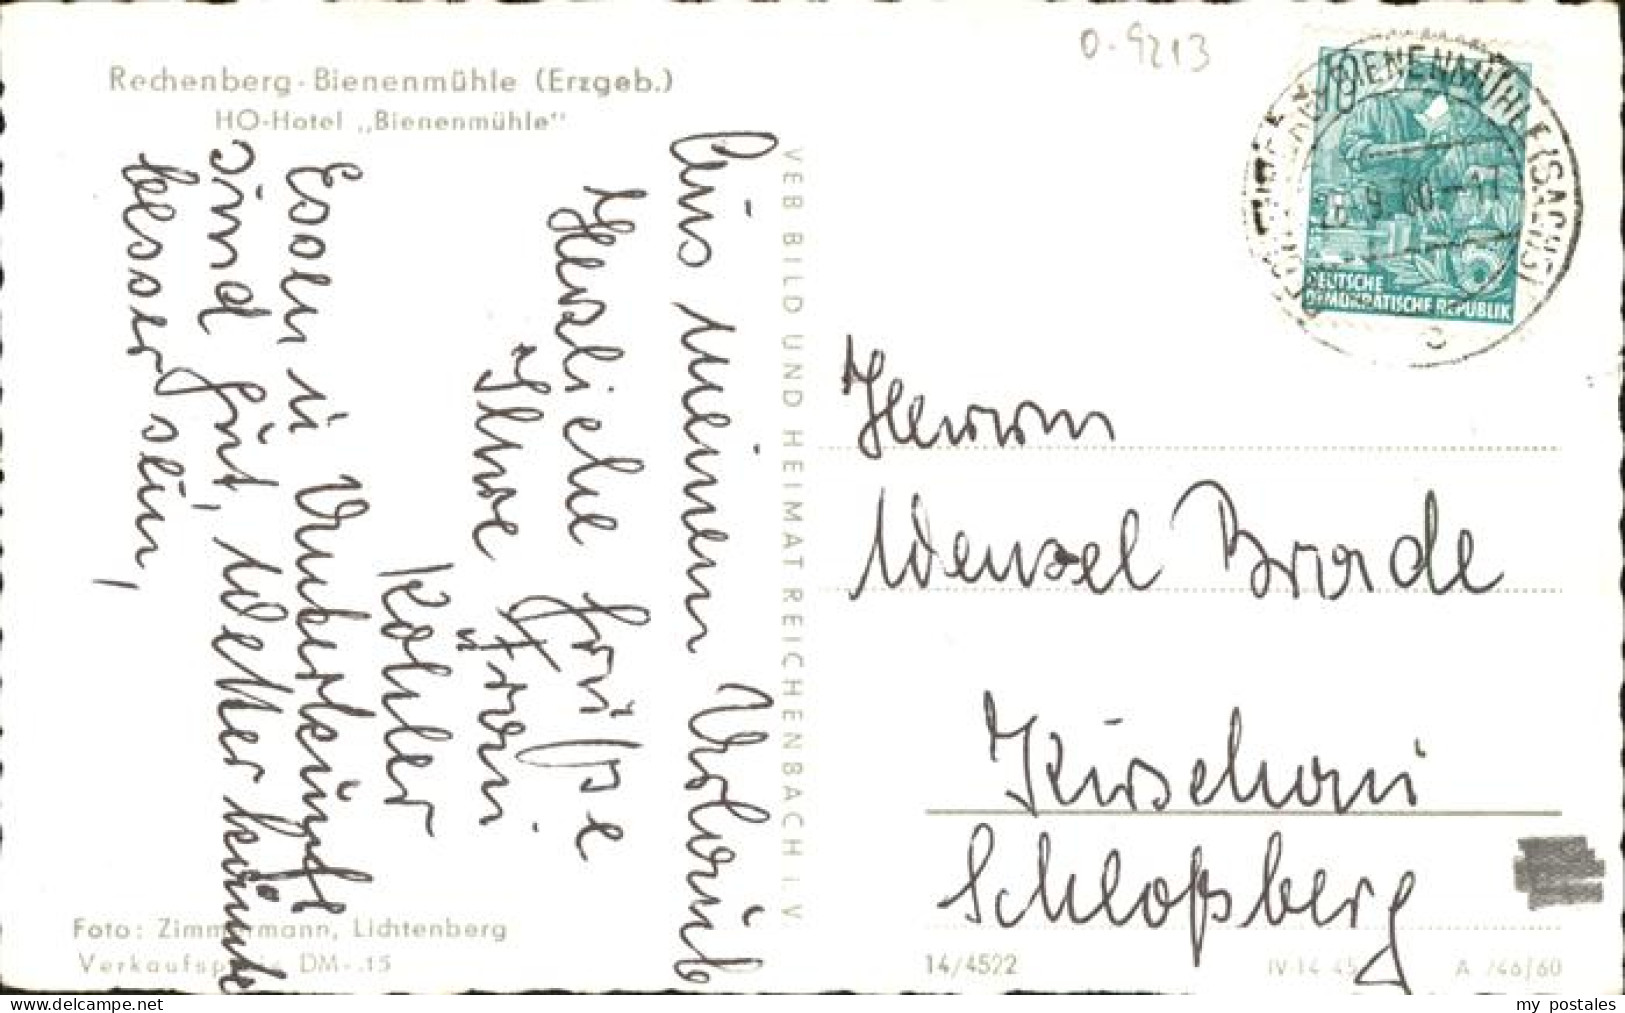 Rechenberg-Bienenmühle (Erzgeb.)
HO-Hotel „Bienenmühle"
Aus meinem Urlaub
Herzliche Grüße
Ihre Frau
Köhler
Essen u Unterkünfte
sind gut, Wetter könnte
besser sein,
VEB BILD UND HEIMAT REICHENBACH i. V.
Foto: Zimmermann, Lichtenberg
Verkaufspreis DM -.15
0-9213
10
BIENENMÜHLE
9.60-17
DEUTSCHE
DEMOKRATISCHE REPUBLIK
c
Herrn
Wenzel Brade
Kirschau
Schloßberg
14/4522
IV-14-45
A 746/60
my postales